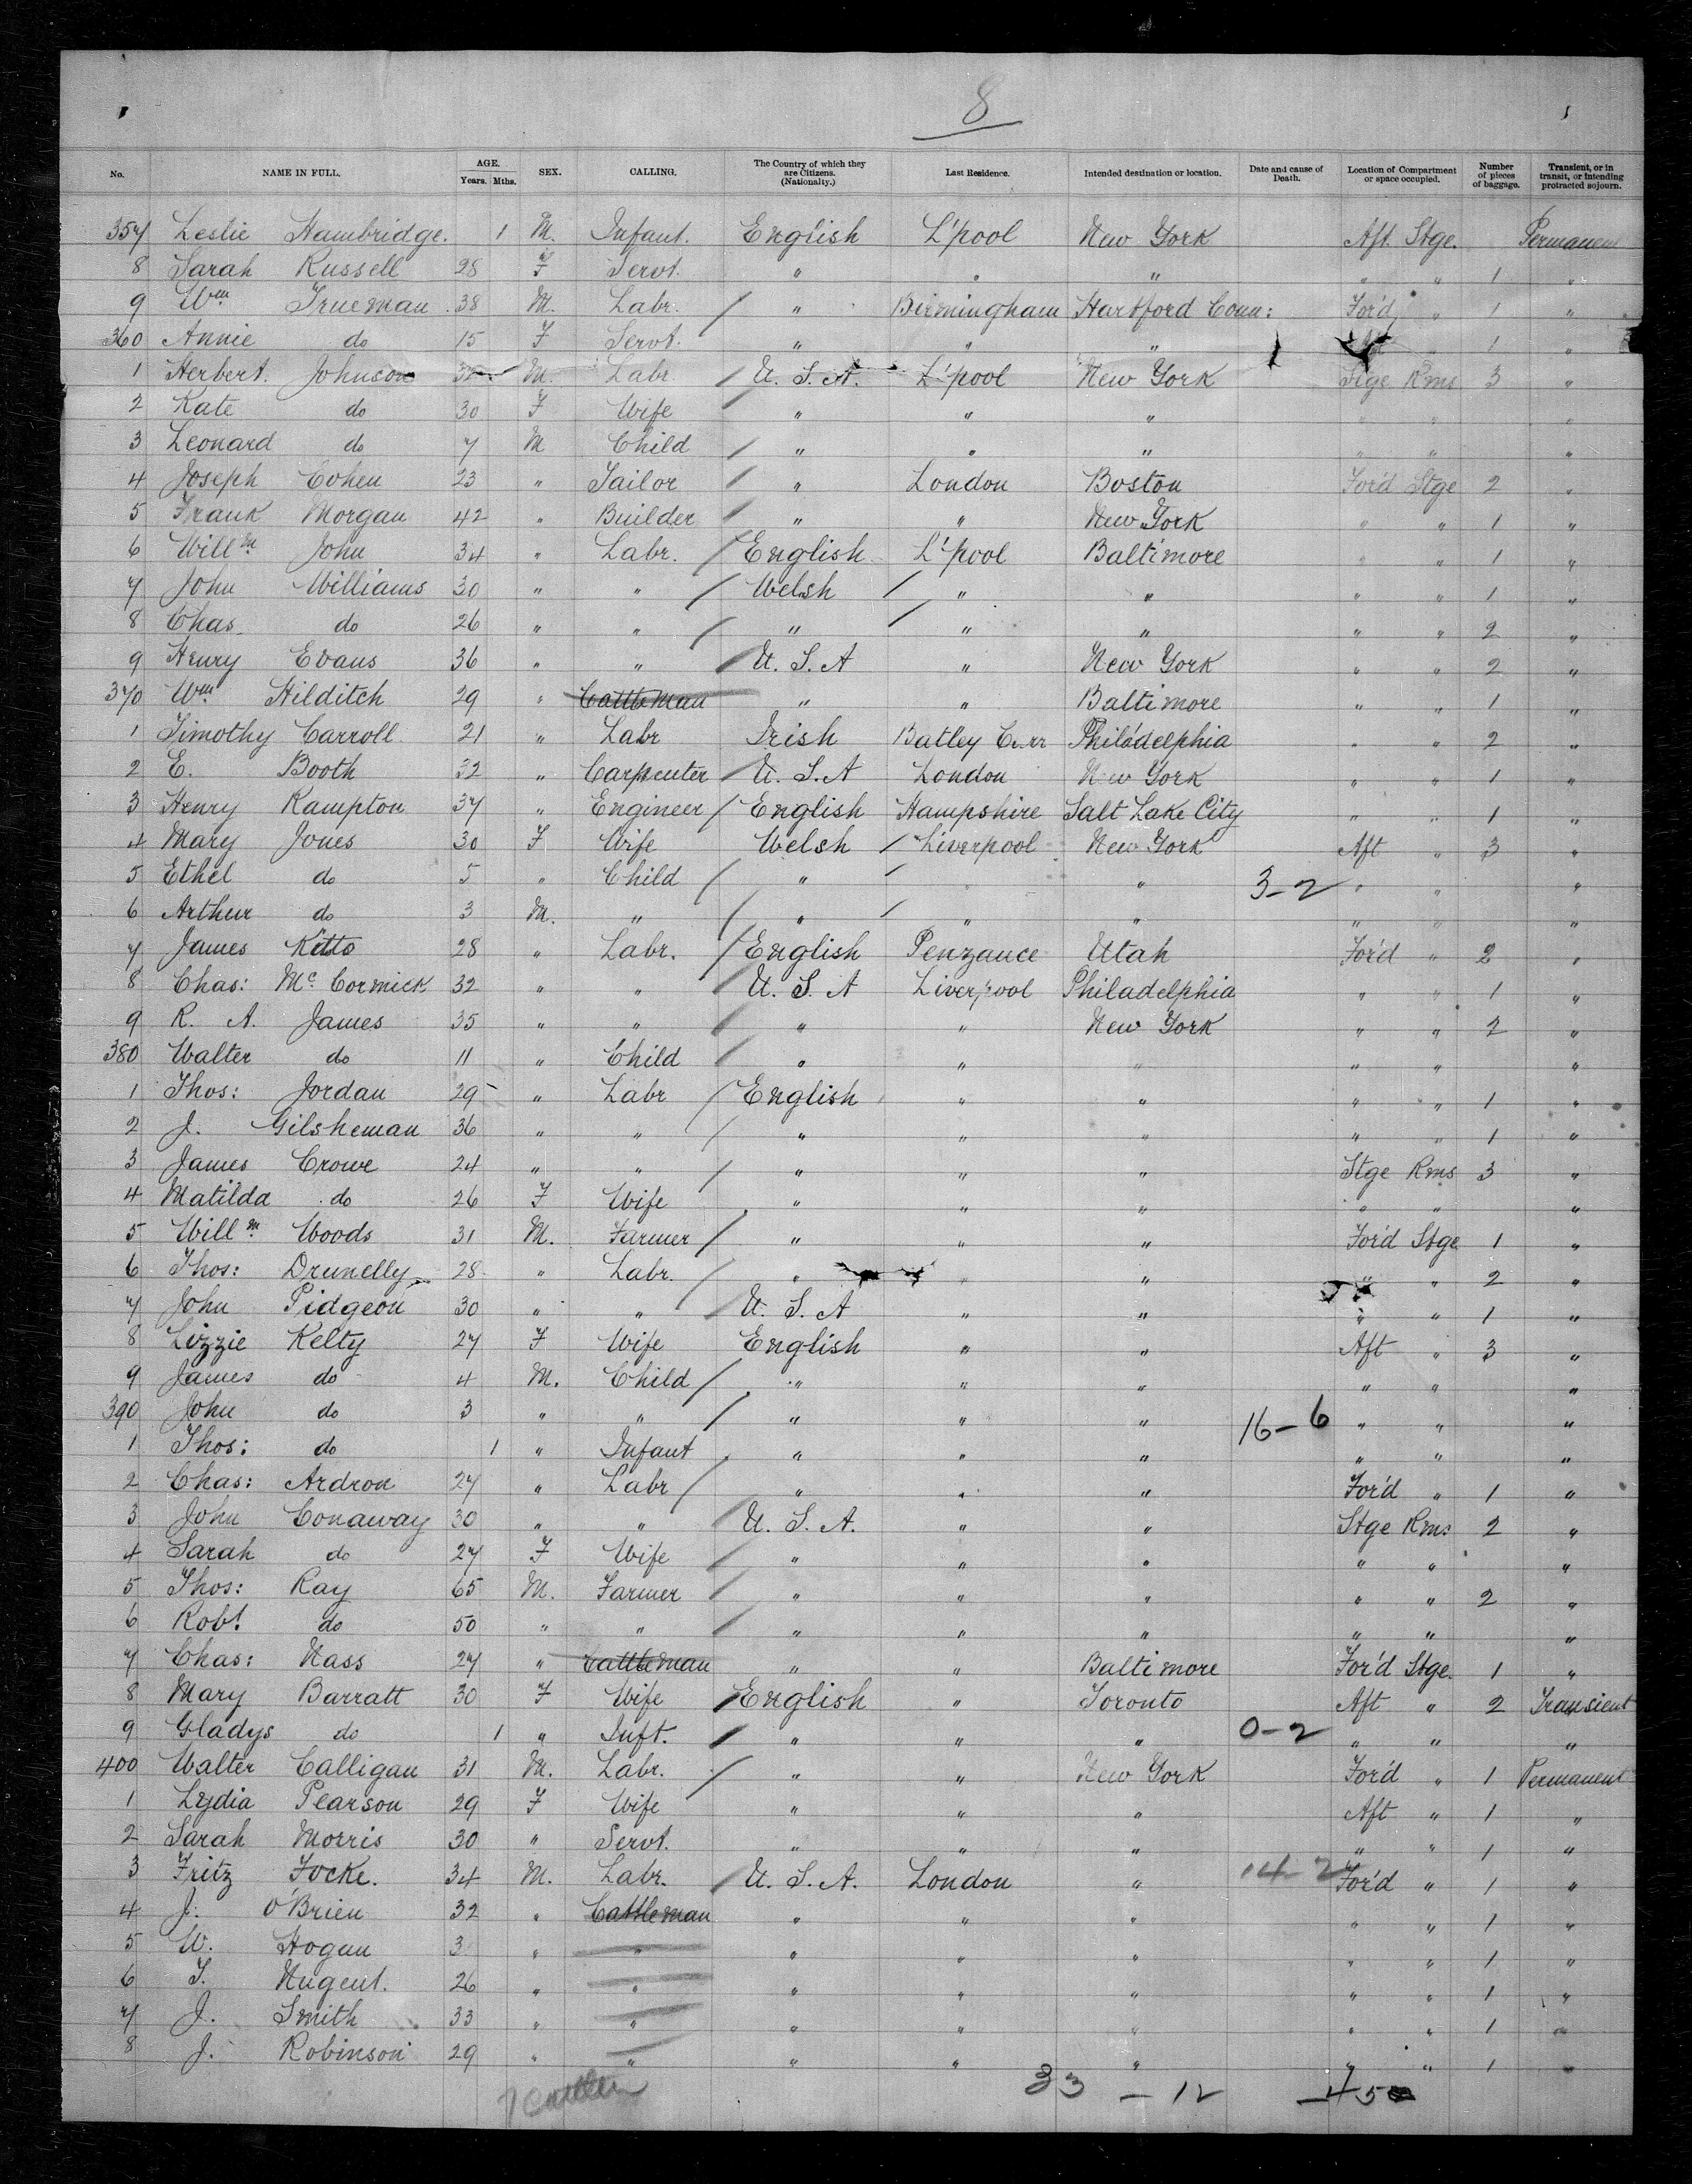 8
No. NAME IN FULL. AGE. Years. Mths. SEX. CALLING. The Country of which they are Citizens. (Nationality.) Last Residence. Intended destination or location. Date and cause of Death. Location of Compartment or space occupied. Number of pieces of baggage. Transient, or in transit, or intending protracted sojourn.
357 Leslie Hambridge. 1 M. Infant. English L'pool New York Aft. Stge. Permanent
8 Sarah Russell 28 F Servt. " " " " " 1 "
9 Wm Trueman 38 M. Labr. / " Birmingham Hartford Conn: For'd " 1 "
360 Annie do 15 F Servt. " " " " 1 "
1 Herbert. Johnson M. Labr / U. S. A. L'pool New York Stge Rms 3 "
2 Kate do 30 F Wife / " " " " " "
3 Leonard do 7 M Child / " " " " " "
4 Joseph Cohen 23 " Tailor / " London Boston For'd Stge 2 "
5 Frank Morgan 42 " Builder / " " New York " " 1 "
6 Willm John 34 " Labr. / English L'pool Baltimore " " 1 "
7 John Williams 30 " " / Welsh / " " " " 1 "
8 Chas do 26 " " / " / " " " " 2 "
9 Henry Evans 36 " " / U. S. A " New York " " 2 "
370 Wm Hilditch 29 " Cattleman " " Baltimore " " 1 "
1 Timothy Carroll 21 " Labr Irish Batley Carr Philadelphia " " 2 "
2 E. Booth 32 " Carpenter / U. S. A London New York " " 1 "
3 Henry Rampton 37 " Engineer / English Hampshire Salt Lake City " " 1 "
4 Mary Jones 30 F Wife Welsh / Liverpool New York Aft " 3 "
5 Ethel do 5 " Child / " / " " 3-2 " " "
6 Arthur do 3 M. " / " / " " " " "
7 James Kitto 28 " Labr. / English Penzance Utah For'd " 2 "
8 Chas: Mc Cormick 32 " " / U. S. A Liverpool Philadelphia " " 1 "
9 R. A. James 35 " " / " " New York " " 2 "
380 Walter do 11 " Child / " " " " " "
1 Thos: Jordan 29 " Labr / English " " " " 1 "
2 J. Gilsheman 36 " " / " " " " " 1 "
3 James Crowe 24 " " / " " " Stge Rms 3 "
4 Matilda do 26 F Wife " " " " " "
5 Willm Woods 31 M. Farmer / " " " For'd Stge 1 "
6 Thos: Drunelly 28 " Labr. / " " " " " 2 "
7 John Pidgeon 30 " " / U. S. A " " " " 1 "
8 Lizzie Kelty 27 F Wife English " " Aft " 3 "
9 James do 4 M. Child / " " " " " "
390 John do 3 " " / " " " 16-6 " " "
1 Thos: do 1 " Infant " " " " " "
2 Chas: Ardron 27 " Labr / " " " For'd " 1 "
3 John Conaway 30 " " / U. S. A. " " Stge Rms 2 "
4 Sarah do 27 F Wife / " " " " " "
5 Thos: Ray 65 M. Farmer / " " " " " 2 "
6 Robt do 50 " " / " " " " " "
7 Chas: Nass 27 " Cattleman " " Baltimore For'd Stge. 1 "
8 Mary Barratt 30 F Wife / English " Toronto Aft " 2 Transient
9 Gladys do 1 " Inft. / " " " 0-2 " " "
400 Walter Calligan 31 M. Labr. / " " New York For'd " 1 Permanent
1 Lydia Pearson 29 F Wife " " " Aft " 1 "
2 Sarah Morris 30 " Servt. " " " " " 1 "
3 Fritz Focke. 34 M. Labr. / U. S. A. London " 14-2 For'd " 1 "
4 J. O'Brien 32 " Cattleman " " " " " 1 "
5 W. Hogan 3 " " " " " " " 1 "
6 T. Nugent. 26 " " " " " " " 1 "
7 J. Smith 33 " " " " " " " 1 "
8 J. Robinson 29 " " " " " " " 1 "
33 - 12 45